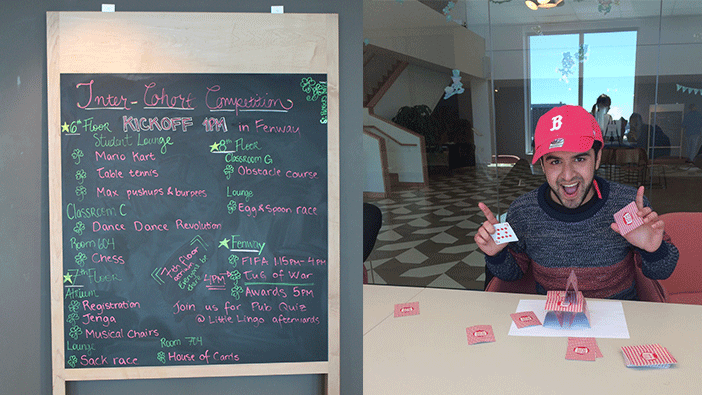 Inter-Cohort Competition
6th Floor
KICKOFF 1PM in Fenway
Student Lounge
Mario Kart
Table tennis
Max pushups & burpees
Classroom C
Dance Dance Revolution
Room 604
Chess
7th FLOOR
Atrium
Registration
Jenga
Musical Chairs
Lounge
Sack race
Room 704
House of Cards
8th Floor
Classroom G
Obstacle course
Lounge
Egg & Spoon race
Fenway
FIFA 1:15PM - 4PM
Tug of War
4PM
Awards 5PM
7th Floor
Join us for Pub Quiz
@ Little Lingo afterwards
B